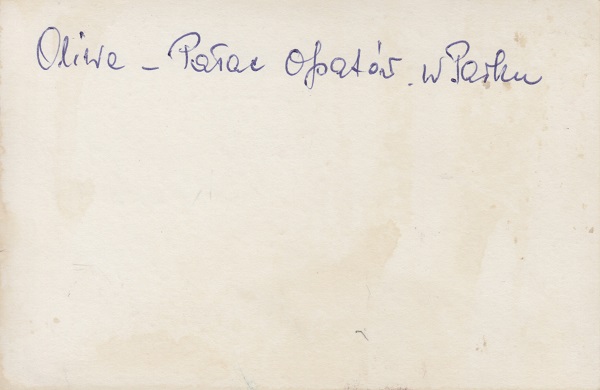 Oliwa - Pałac Opatów w Parku